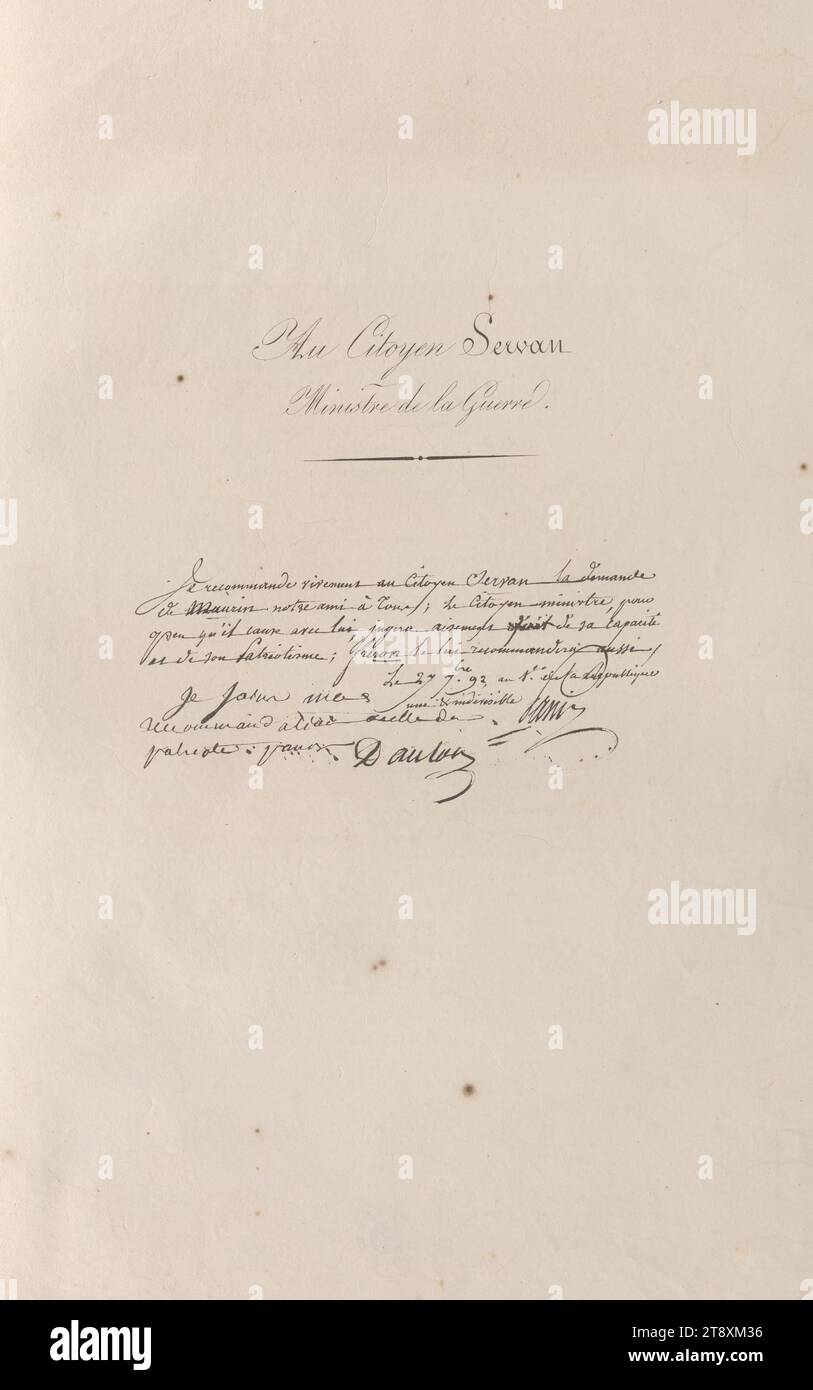 Au Citoyen Servan
Ministre de la Guerre.
Je recommande vivement au Citoyen Servan la demande
de Maurin notre ami à tous; le Citoyen ministre, pour
peu qu'il cause avec lui, jugera aisément de sa capacité
et de son Patriotisme; Fréron le lui recommandera aussi
Le 27 7.bre 92, an 1.er de la République
une & indivisible
Panis
Je joins mes
recommandation celle du
patriote panis
Danton
alamy
Image ID: 2T8XM36
www.alamy.com